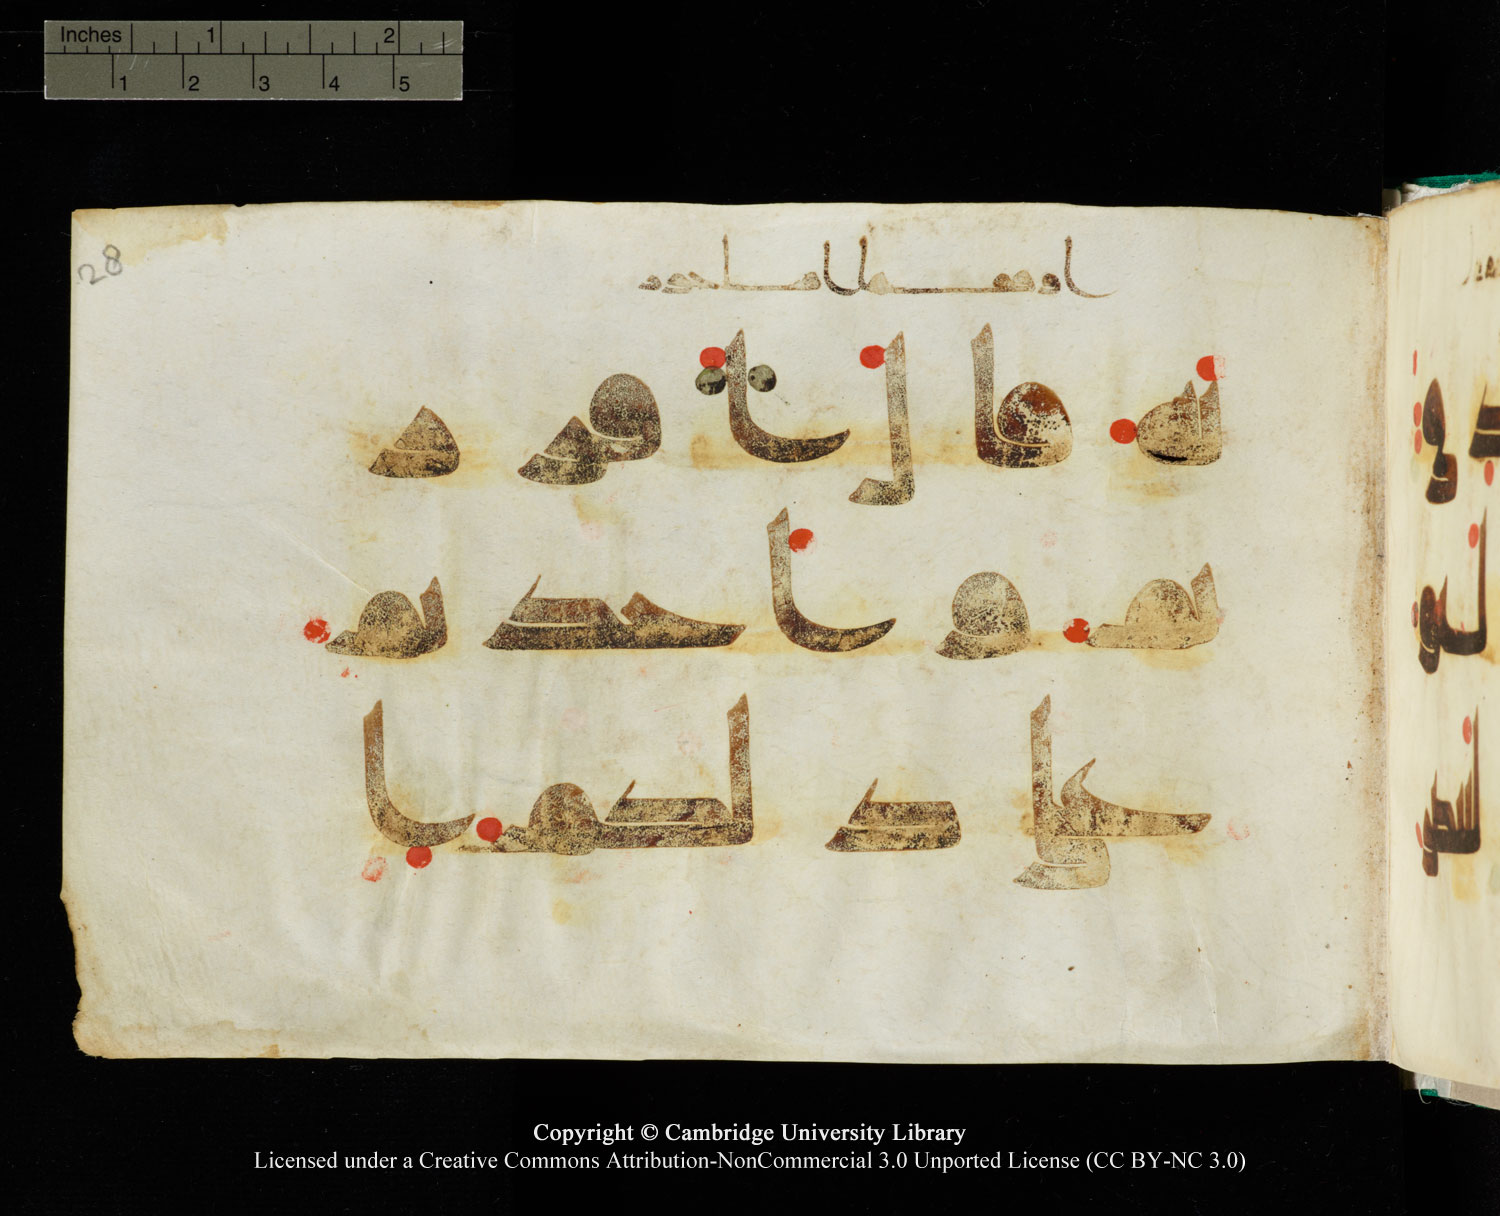 Inches 1 2
1 2 3 4 5
28
نه قال اقرر
تم واخذتم
على ذلكم ا
Copyright © Cambridge University Library
Licensed under a Creative Commons Attribution-NonCommercial 3.0 Unported License (CC BY-NC 3.0)